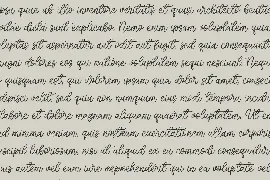 ipsa quae ab illo inventore veritatis et quasi architecto beatae
vitae dicta sunt explicabo. Nemo enim ipsam voluptatem quia
voluptas sit aspernatur aut odit aut fugit, sed quia consequuntur
magni dolores eos qui ratione voluptatem sequi nesciunt. Neque
quisquam est, qui dolorem ipsum quia dolor sit amet, consec
adipisci velit, sed quia non numquam eius modi tempora incidunt
labore et dolore magnam aliquam quaerat voluptatem. Ut en
ad minima veniam, quis nostrum exercitationem ullam corporis
suscipit laboriosam, nisi ut aliquid ex ea commodi consequatur
Quis autem vel eum iure reprehenderit qui in ea voluptate vel